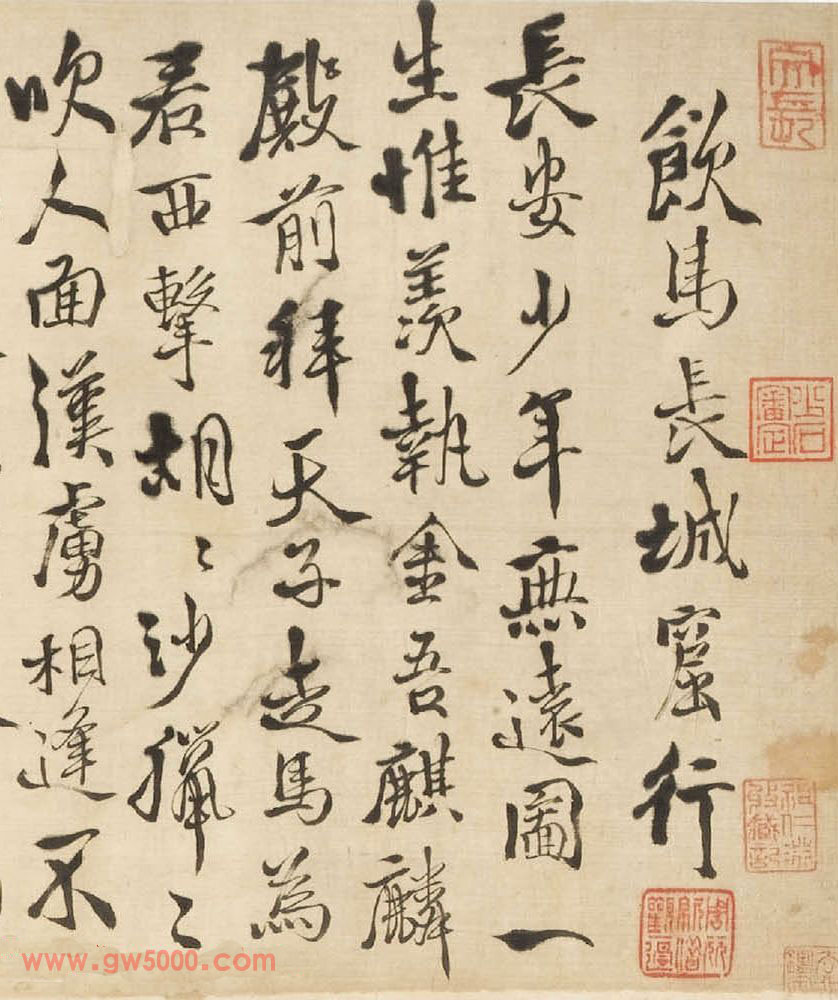 飲馬長城窟行
長安少年無遠圖一
生惟羨執金吾麒麟
殿前拜天子走馬為
君西擊胡〻沙獵〻
吹人面漢虜相逢不
www.gw5000.com